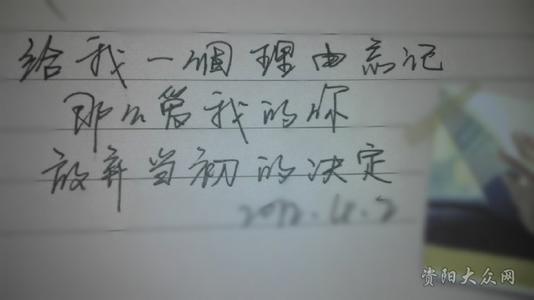 给我一個理由忘记
那么爱我的你
放弃当初的决定
2012.4.2
资阳大众网